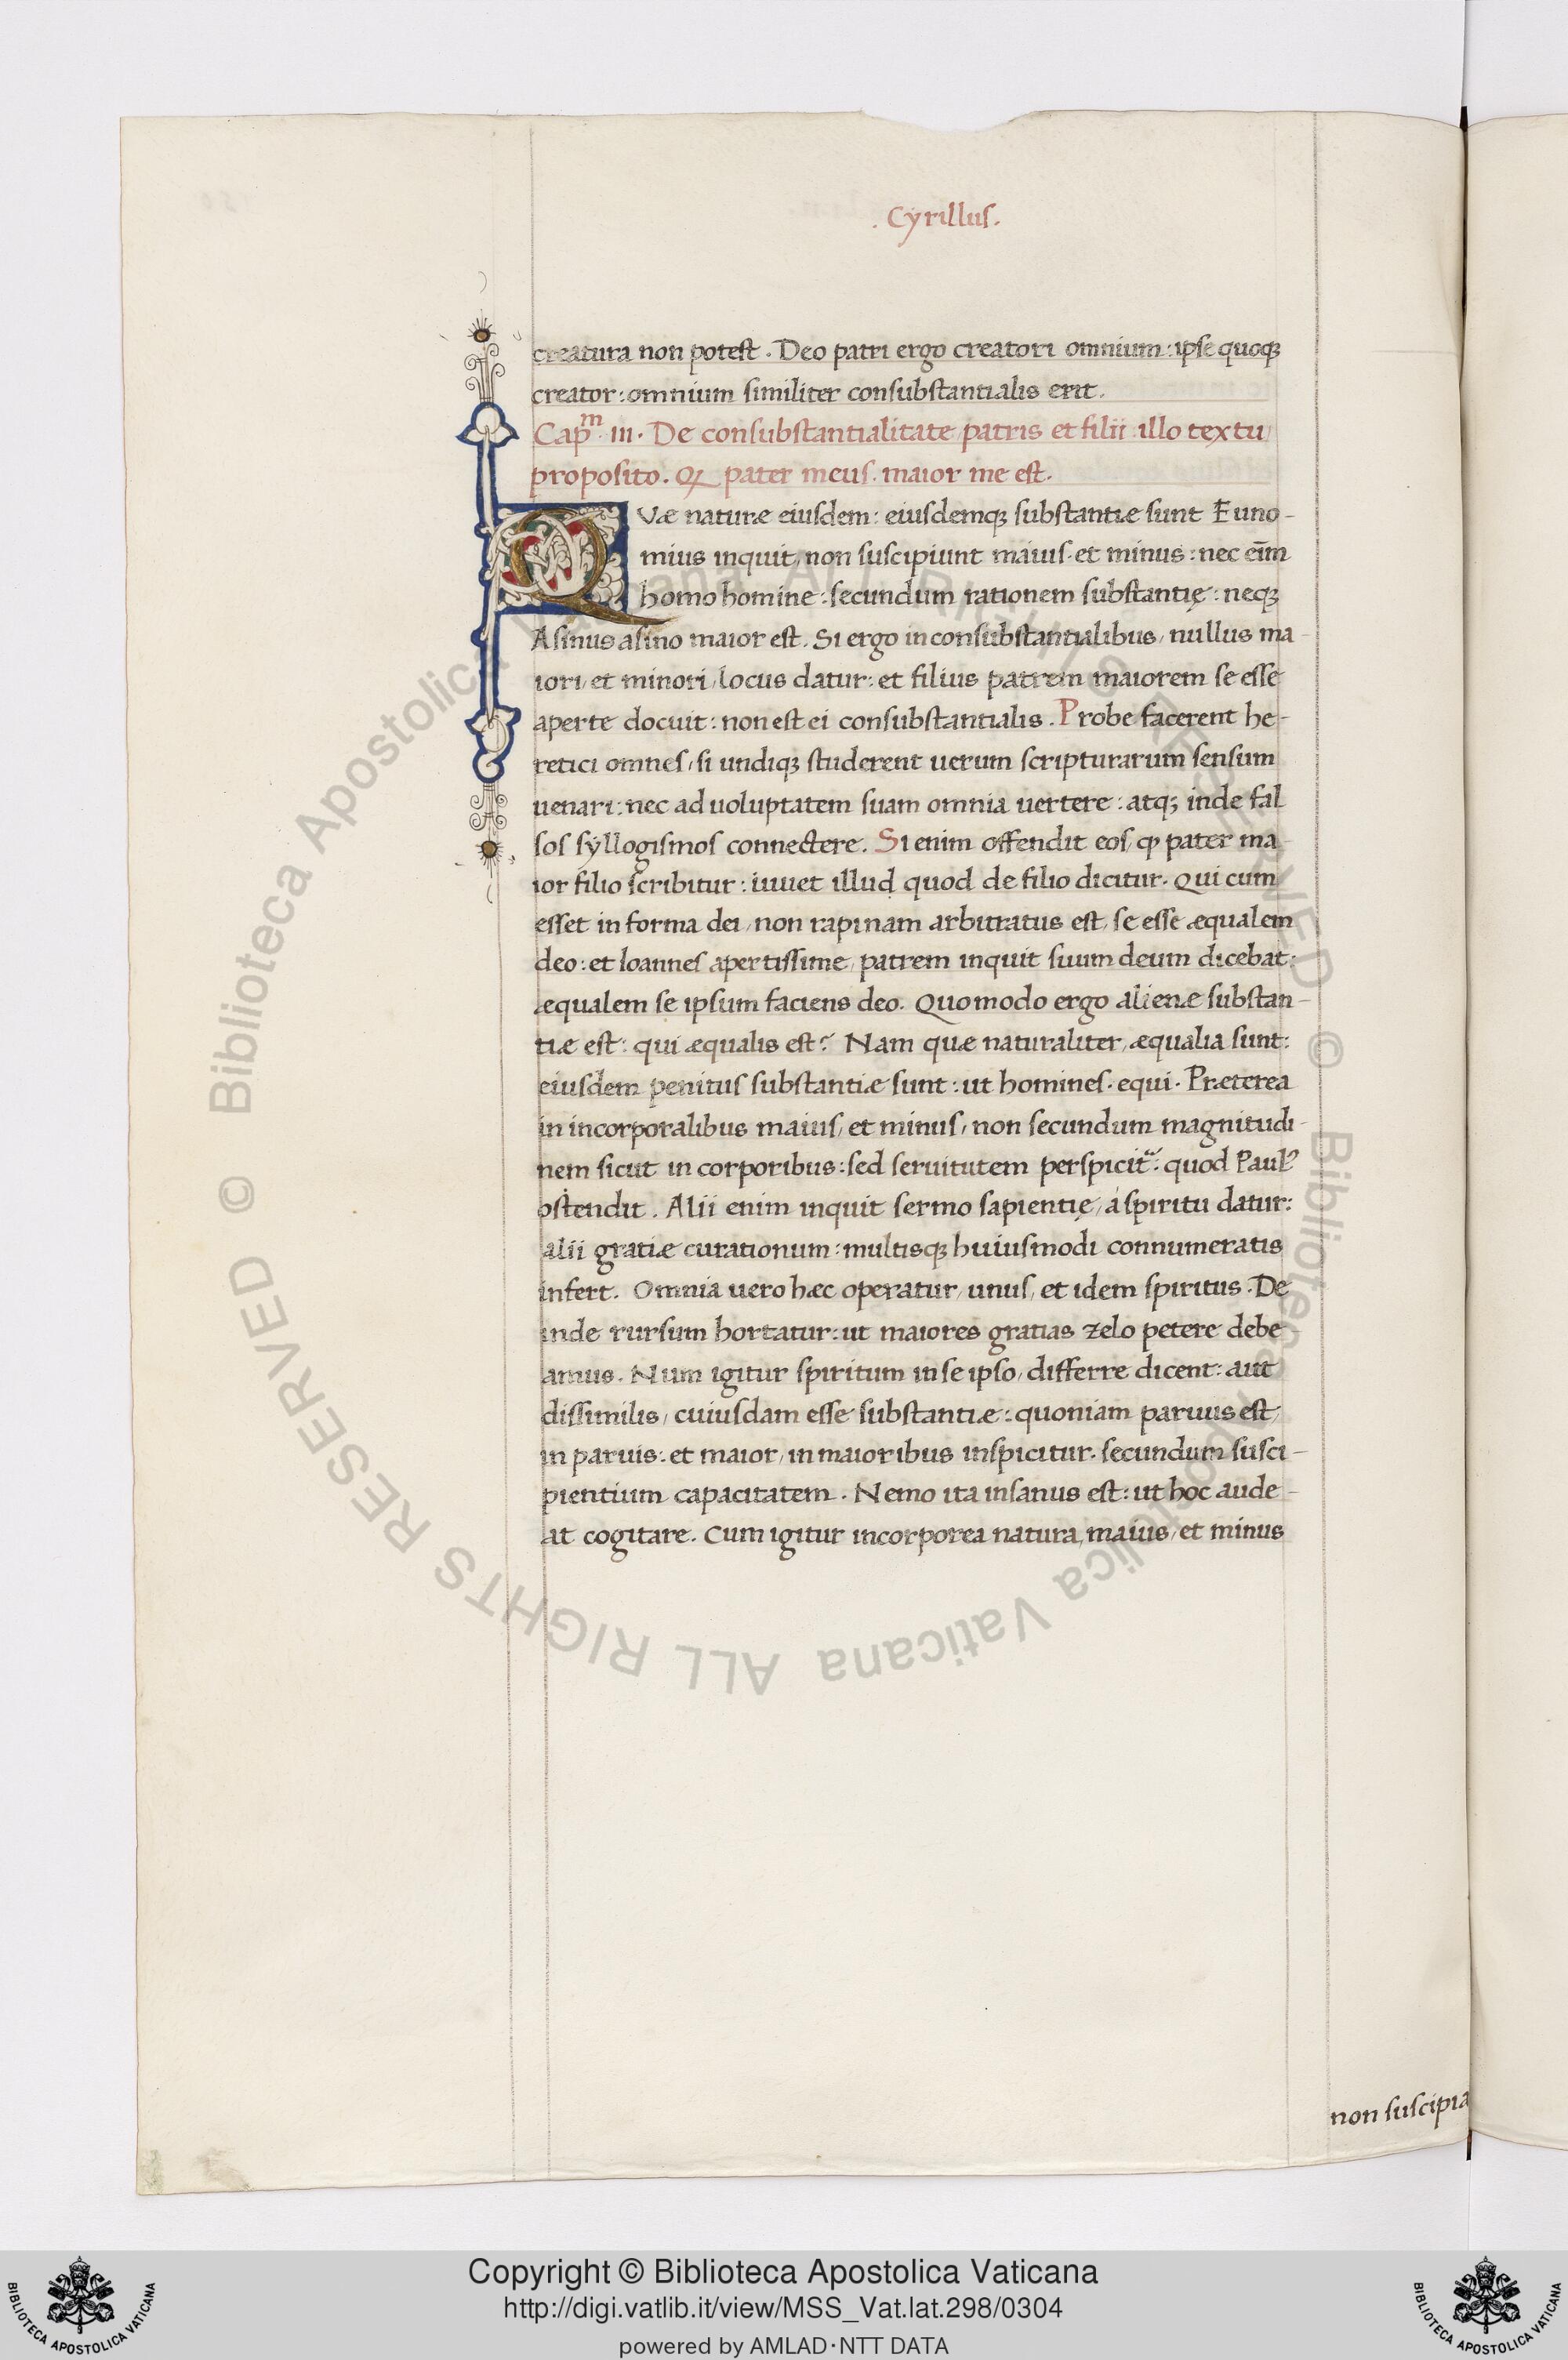 . Cyrillus.
creatura non potest. Deo patri ergo creatori omnium: ipse quoqꝫ
creator: omnium similiter consubstantialis erit.
Cap.ᵐ III. De consubstantialitate patris et filii: illo textu
proposito. Qꝫ pater meus. maior me est.
QVæ naturæ eiusdem: eiusdemqꝫ substantiæ sunt Euno-
mius inquit, non suscipiunt maius. et minus: nec eīm
homo homine: secundum rationem substantię: neqꝫ
Asinus asino maior est. Si ergo in consubstantialibus, nullus ma-
iori, et minori, locus datur: et filius patrem maiorem se esse
aperte docuit: non est ei consubstantialis. Probe facerent he-
retici omnes, si undiqꝫ studerent uerum scripturarum sensum
uenari: nec ad uoluptatem suam omnia uertere: atqꝫ inde fal
sos syllogismos connectere. Si enim offendit eos, ꝙ pater ma
ior filio scribitur: iuuet illud quod de filio dicitur. Qui cum
esset in forma dei, non rapinam arbitratus est, se esse æqualem
deo: et Ioannes apertissime, patrem inquit suum deum dicebat:
æqualem se ipsum faciens deo. Quomodo ergo alienæ substan-
tiæ est: qui æqualis est? Nam quæ naturaliter, æqualia sunt:
eiusdem penitus substantiæ sunt: ut homines. equi. Præterea
in incorporalibus maius, et minus, non secundum magnitudi-
nem sicut in corporibus: sed seruitutem perspicit᷑: quod Paulꝰ
ostendit. Alii enim inquit sermo sapientię, á spiritu datur:
alii gratiæ curationum: multisqꝫ huiusmodi connumeratis
infert. Omnia uero hæc operatur, unus, et idem spiritus. De
inde rursum hortatur: ut maiores gratias zelo petere debe
amus. Num igitur spiritum in se ipso, differre dicent: aut
dissimilis, cuiusdam esse substantiæ: quoniam paruus est,
in paruis: et maior, in maioribus inspicitur. secundum susci-
pientium capacitatem. Nemo ita insanus est: ut hoc aude-
at cogitare. Cum igitur incorporea natura, maius, et minus
non suscipia
© Biblioteca Apostolica Vaticana ALL RIGHTS RESERVED © Biblioteca Apostolica Vaticana ALL RIGHTS RESERVED
Copyright © Biblioteca Apostolica Vaticana
http://digi.vatlib.it/view/MSS_Vat.lat.298/0304
powered by AMLAD·NTT DATA
BIBLIOTECA APOSTOLICA VATICANA
BIBLIOTECA APOSTOLICA VATICANA